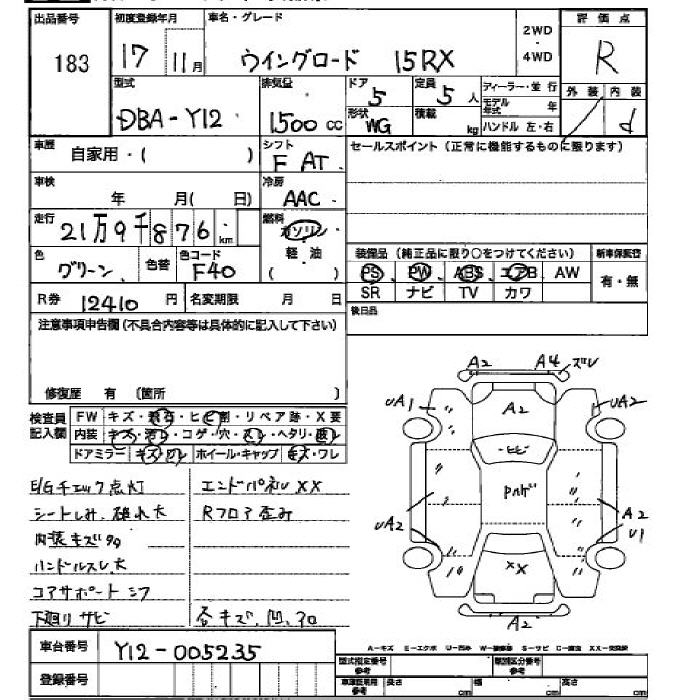 出品番号 初度登録年月 車名・グレード 2WD ・ 4WD 評価点
183 17 11月 ウイングロード 15RX R
型式 排気量 ドア 定員 ディーラー・並行 外装 内装
DBA-Y12 1500cc 5 5人 モデル年式 年 d
形状 WG 積載 kg ハンドル 左・右
車歴 自家用・( ) シフト F AT セールスポイント(正常に機能するものに限ります)
車検 年 月( 日) 冷房 AAC
走行 21万9千876km 燃料 ガソリン 軽・油 ( )
色 グリーン 色替 色コード F40
装備品(純正品に限り○をつけてください) 新車保証書
PS、PW、ABS、エアB、AW 有・無
SR ナビ TV カワ
R券 12410円 名変期限 月 日 後日品
注意事項申告欄(不具合内容等は具体的に記入して下さい)
修復歴 有 (箇所 )
検査員記入欄 FW キズ・飛石・ヒビ・割・リペア跡・X要
内装 キズ・汚レ・コゲ・穴・スレ・ヘタリ・破レ
ドアミラー キズ・ワレ ホイール・キャップ キズ・ワレ
E/Gチェック点灯 エンドパネルXX
シートしみ、破れ大 Rフロア歪み
内装キズ多
ハンドルスレ大
コアサポートシフ
下廻りサビ 各キズ、凹、多
A2 A4 ズレ
UA1 A2 UA2
ヒビ
UA2 A2 U1
XX
A2
A-キズ E-エクボ U-凹み W-補修跡 S-サビ C-腐食 XX-交換済
車台番号 Y12-005235
型式指定番号 参考 類別区分番号 参考
登録番号 車庫証明用 参考 長さ cm 幅 cm 高さ cm